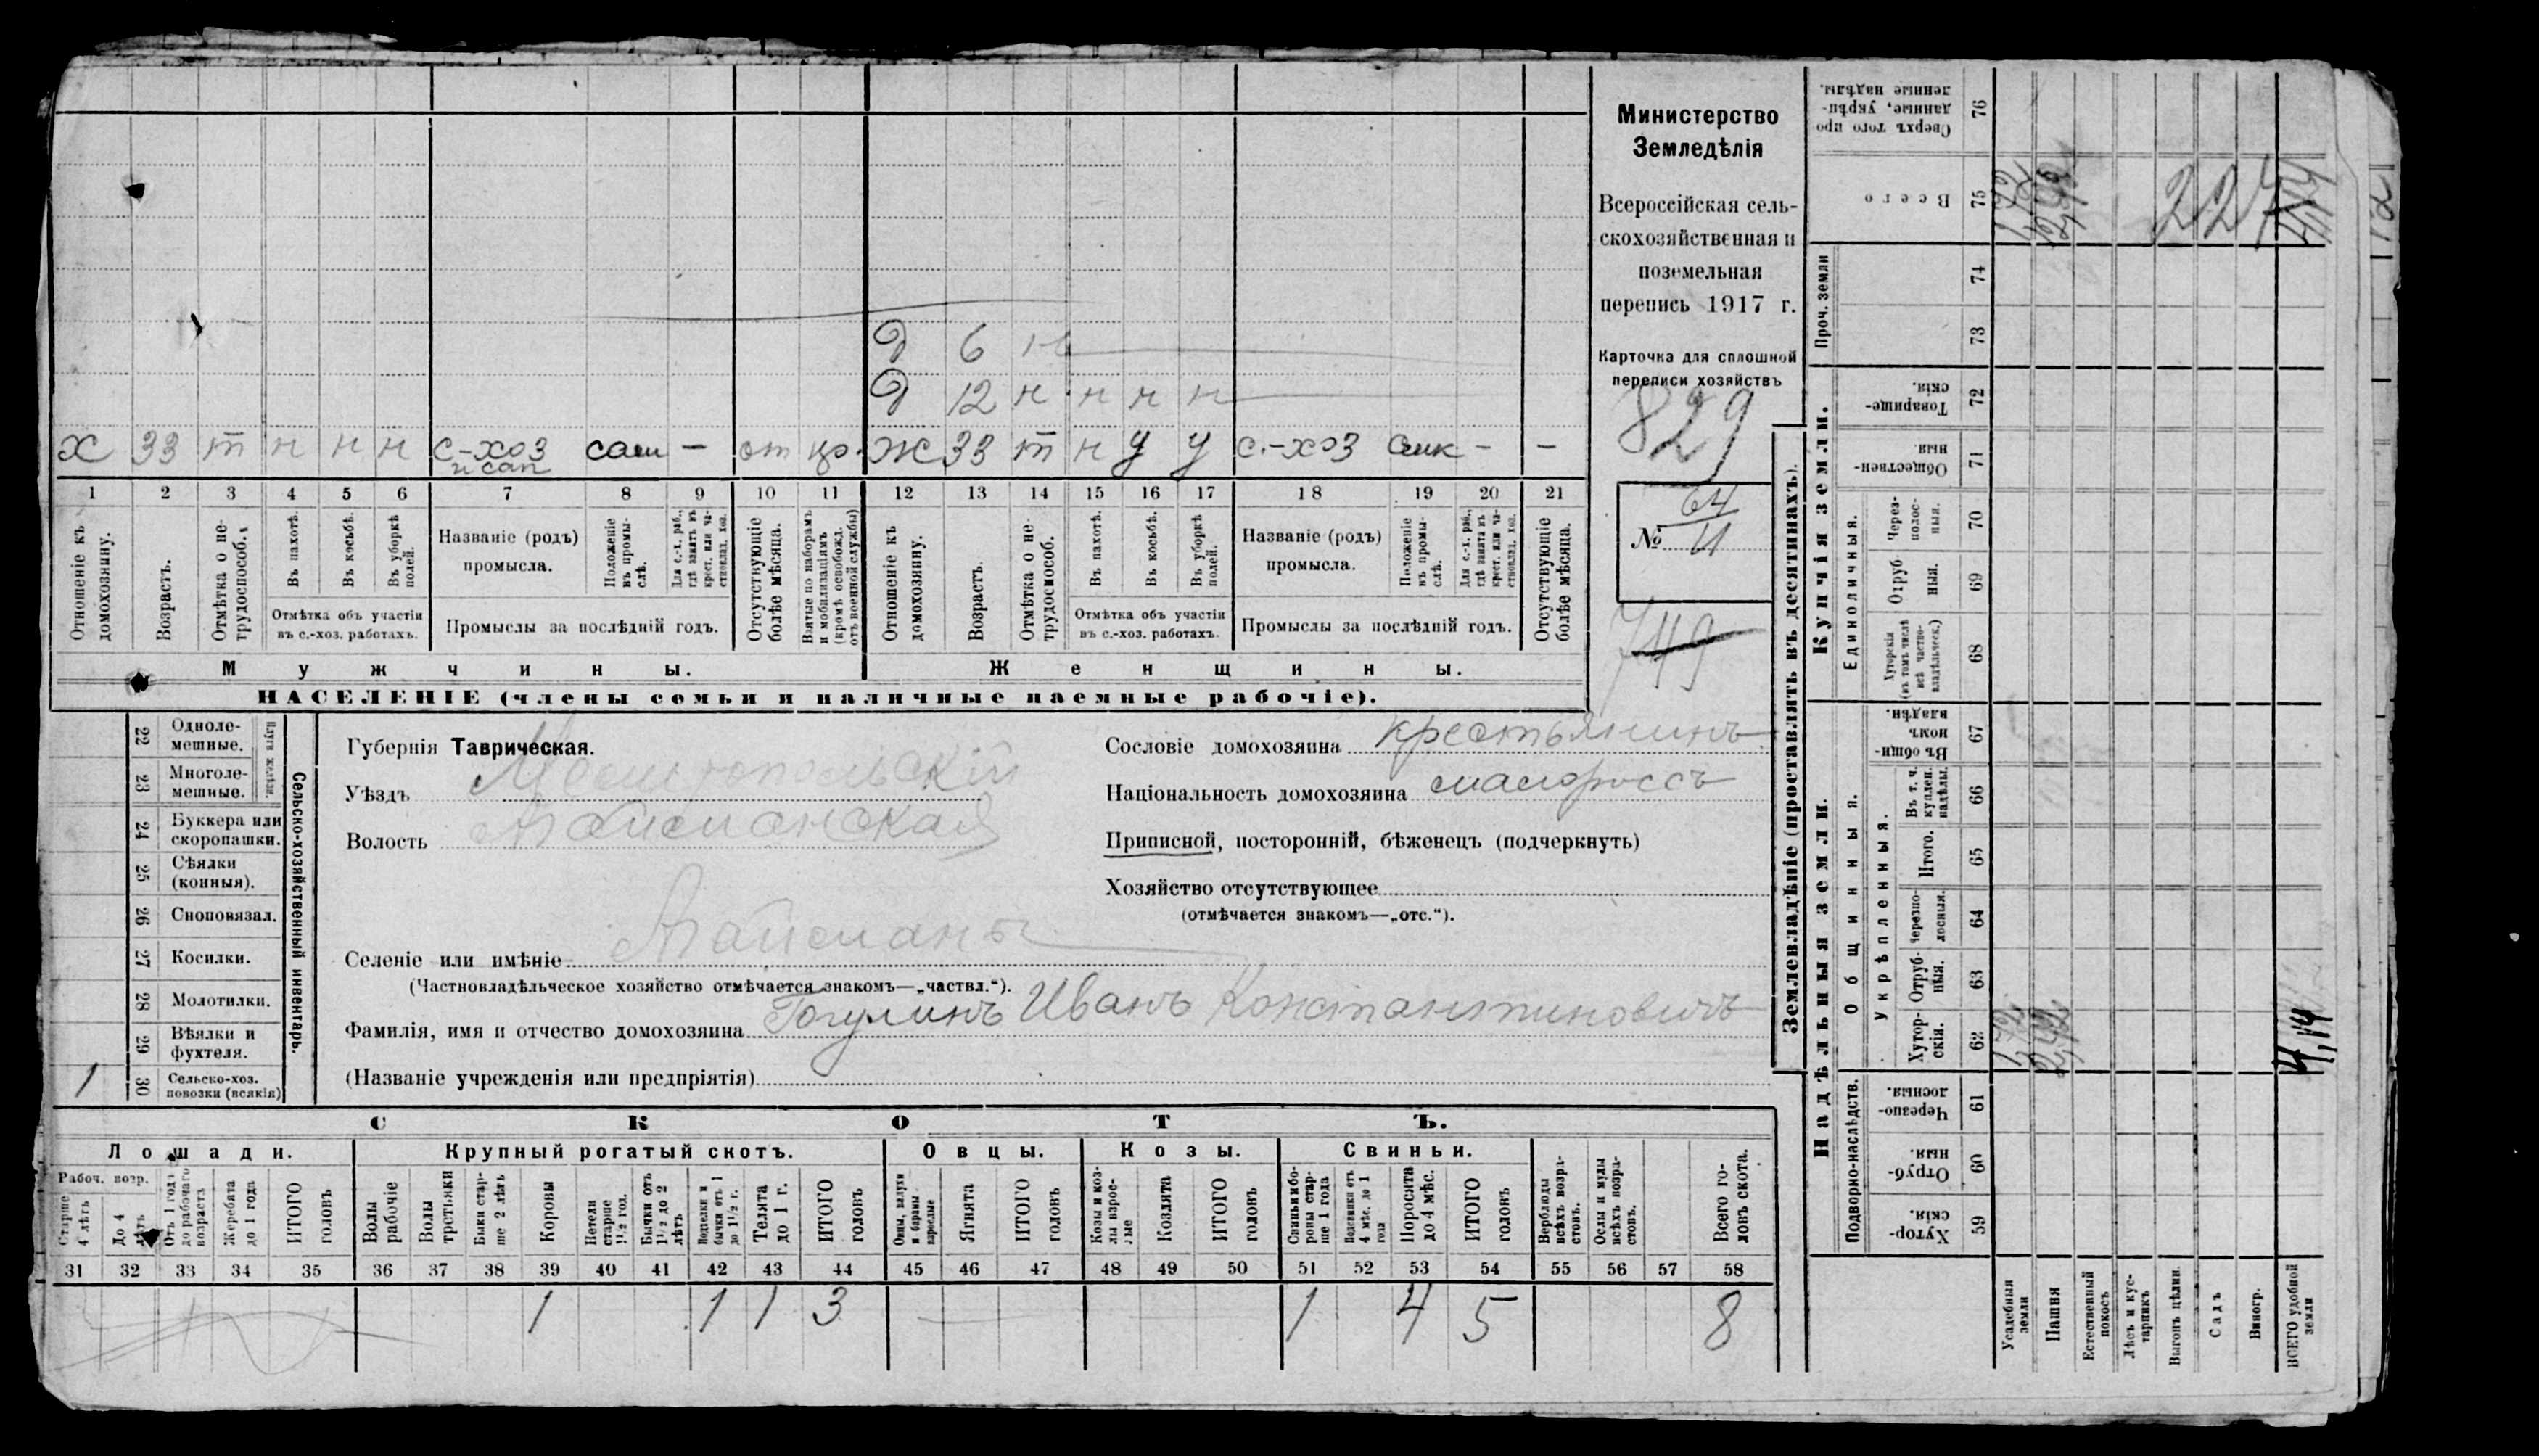 х 33 т н н н с-хоз и сап сам — от
д 6 н
д 12 н н н н
ж 33 т н у у с.-хоз — —
1 2 3 4 5 6 7 8 9 10 11 12 13 14 15 16 17 18 19 20 21
Отношеніе къ домохозяину.
Возрастъ.
Отмѣтка о не-трудоспособ.
Въ пахотѣ.
Въ косьбѣ.
Въ уборкѣ полей.
Отмѣтка объ участіи
въ с.-хоз. работахъ.
Названіе (родъ)
промысла.
Положеніе въ промы-слѣ.
Для с.-х. раб., гдѣ занятъ въ крест. или ча-стновлад. хоз.
Промыслы за послѣдній годъ.
Отсутствующіе болѣе мѣсяца.
Взятые по наборамъ и мобилизаціямъ (кромѣ освобожд. отъ военной службы)
Отношеніе къ домохозяину.
Возрастъ.
Отмѣтка о не-трудоспособ.
Въ пахотѣ.
Въ косьбѣ.
Въ уборкѣ полей.
Отмѣтка объ участіи
въ с.-хоз. работахъ.
Названіе (родъ)
промысла.
Положеніе въ промы-слѣ.
Для с.-х. раб., гдѣ занята въ крест. или ча-стновлад. хоз.
Промыслы за послѣдній годъ.
Отсутствующіе болѣе мѣсяца.
Мужчины.
Женщины.
НАСЕЛЕНІЕ (члены семьи и наличные наемные рабочіе).
Министерство
Земледѣлія
Всероссійская сель-
скохозяйственная и
поземельная
перепись 1917 г.
Карточка для сплошной
переписи хозяйствъ
829
№ 64
11
749
Сельско-хозяйственный инвентарь.
22 Одноле-мешные.
23 Многоле-мешные.
24 Буккера или скоропашки.
25 Сѣялки (конныя).
26 Сноповязал.
27 Косилки.
28 Молотилки.
29 Вѣялки и фухтеля.
1 30 Сельско-хоз. повозки (всякія)
Губернія Таврическая.
Уѣздъ Мелитопольскій
Волость
Селеніе или имѣніе
(Частновладѣльческое хозяйство отмѣчается знакомъ—„частвл.“).
Фамилія, имя и отчество домохозяина Гогулинъ Иванъ Константиновичъ
(Названіе учрежденія или предпріятія)
Сословіе домохозяина крестьянинъ
Національность домохозяина малороссъ
Приписной, посторонній, бѣженецъ (подчеркнуть)
Хозяйство отсутствующее
(отмѣчается знакомъ—„отс.“).
СКОТЪ.
Лошади.
Рабоч. возр.
Старше 4 лѣтъ
До 4 лѣтъ
Отъ 1 года до рабочаго возраста
Жеребята до 1 года
ИТОГО головъ
Крупный рогатый скотъ.
Волы рабочіе
Волы третьяки
Быки стар-ше 2 лѣтъ
Коровы
Нетели старше 1½ год.
Бычки отъ 1½ до 2 лѣтъ
Подтелки и бычки отъ 1 до 1½ г.
Телята до 1 г.
ИТОГО головъ
Овцы.
Овцы, валухи и бараны взрослые
Ягнята
ИТОГО головъ
Козы.
Козы и коз-лы взрос-лые
Козлята
ИТОГО головъ
Свиньи.
Свиньи и бо-ровы стар-ше 1 года
Подсвинки отъ 4 мѣс. до 1 года
Поросята до 4 мѣс.
ИТОГО головъ
Верблюды всѣхъ возра-стовъ.
Ослы и мулы всѣхъ возра-стовъ.
Всего го-ловъ скота.
31 32 33 34 35 36 37 38 39 40 41 42 43 44 45 46 47 48 49 50 51 52 53 54 55 56 57 58
1 1 1 3 — — 1 4 5 8
Землевладѣніе (проставлять въ десятинахъ).
Купчія земли.
Надѣльныя земли.
Сверхъ того про-данные, укрѣп-ленные надѣлы. 76
Всего 75
227
Проч. земли 74 73
Товарище-скія. 72
Обществен-ныя 71
Единоличныя.
Через-полос-ныя. 70
Отруб-ныя. 69
Хуторскія (въ томъ числѣ всѣ частно-владѣльческ.) 68
Общинныя.
Въ общин-номъ владѣн. 67
Укрѣпленныя.
Въ т. ч. куплен. надѣлы. 66
Итого. 65
Черезпо-лосныя. 64
Отруб-ныя. 63
Хутор-скія. 62
4,14
Подворно-наслѣдств.
Черезпо-лосныя. 61
Отруб-ныя. 60
Хутор-скія. 59
Усадебныя земли
Пашня
Естественный покосъ
Лѣсъ и кус-тарникъ
Выгонъ цѣлин.
Садъ
Виногр.
ВСЕГО удобной земли